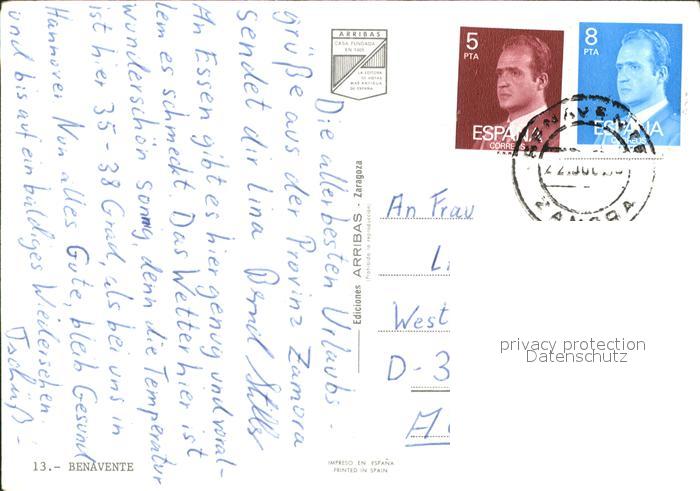 Die allerbesten Urlaubs-
grüße aus der Provinz Zamora
sendet dir Lina Bernd
An Essen gibt es hier genug und voral-
lem es schmeckt. Das Wetter hier ist
wunderschön sonnig, denn die Temperatur
ist hier 35-38 Grad, als bei uns in
Hannover Nun alles Gute, bleib Gesund
und bis auf ein baldiges Wiedersehen.
Tschüß -
13.- BENAVENTE
ARRIBAS
CASA FUNDADA
EN 1905
LA EDITORA
DE VISTAS
MAS ANTIGUA
DE ESPAÑA
Ediciones ARRIBAS - Zaragoza
(Prohibida la reproducción)
IMPRESO EN ESPAÑA
PRINTED IN SPAIN
5
PTA
ESPAÑA
CORREOS
8
PTA
ESPAÑA
CORREOS
BENAVENTE
ZAMORA
An Frau
West
D-3
privacy protection
Datenschutz